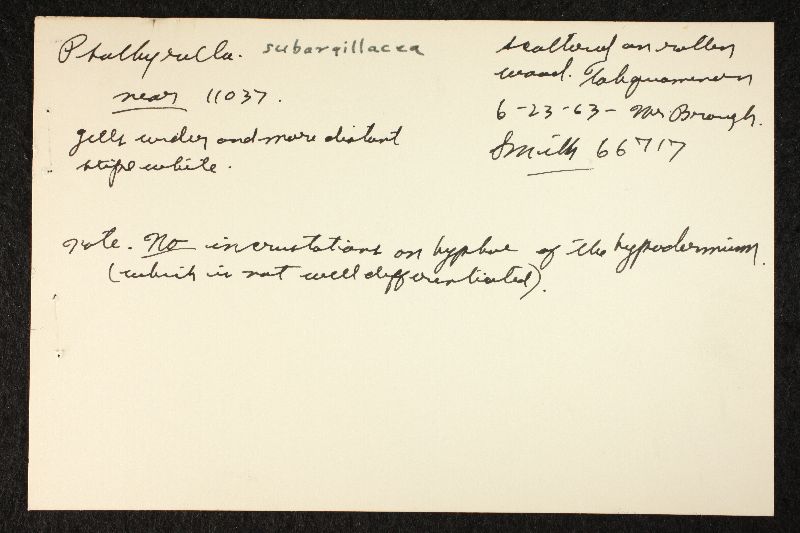 Psathyrella. subargillacea
near 11037.
gills wider and more distant
stipe white.
scattered on rotten
wood. Tahquamenon
6-23-63 - Mr Brough.
Smith 66717
note. No incrustations on hyphae of the hypodermium.
(which is not well differentiated).